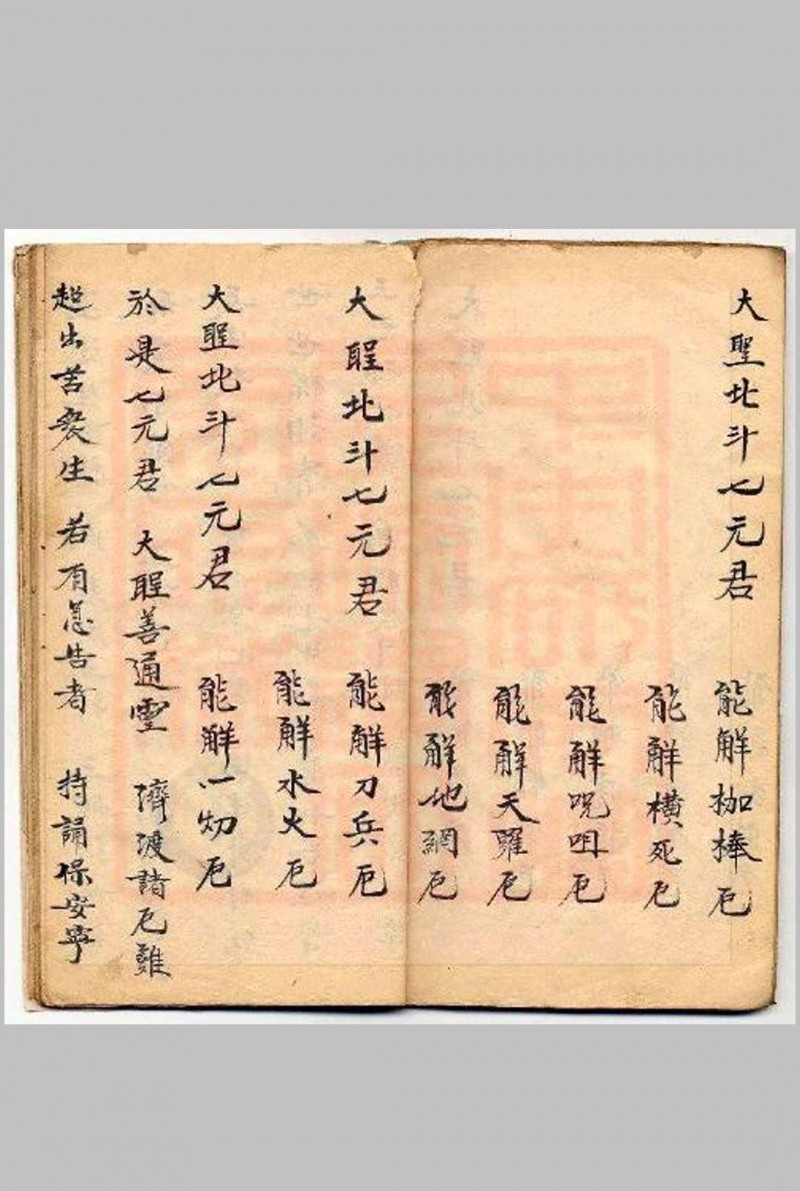 大聖北斗七元君 能解枷棒厄
能解橫死厄
能解呪咀厄
能解天羅厄
能解地網厄
大聖北斗七元君 能解刀兵厄
能解水火厄
大聖北斗七元君 能解一切厄
於是七元君 大聖善通靈 濟渡諸厄難
超出苦衆生 若有急告者 持誦保安寧